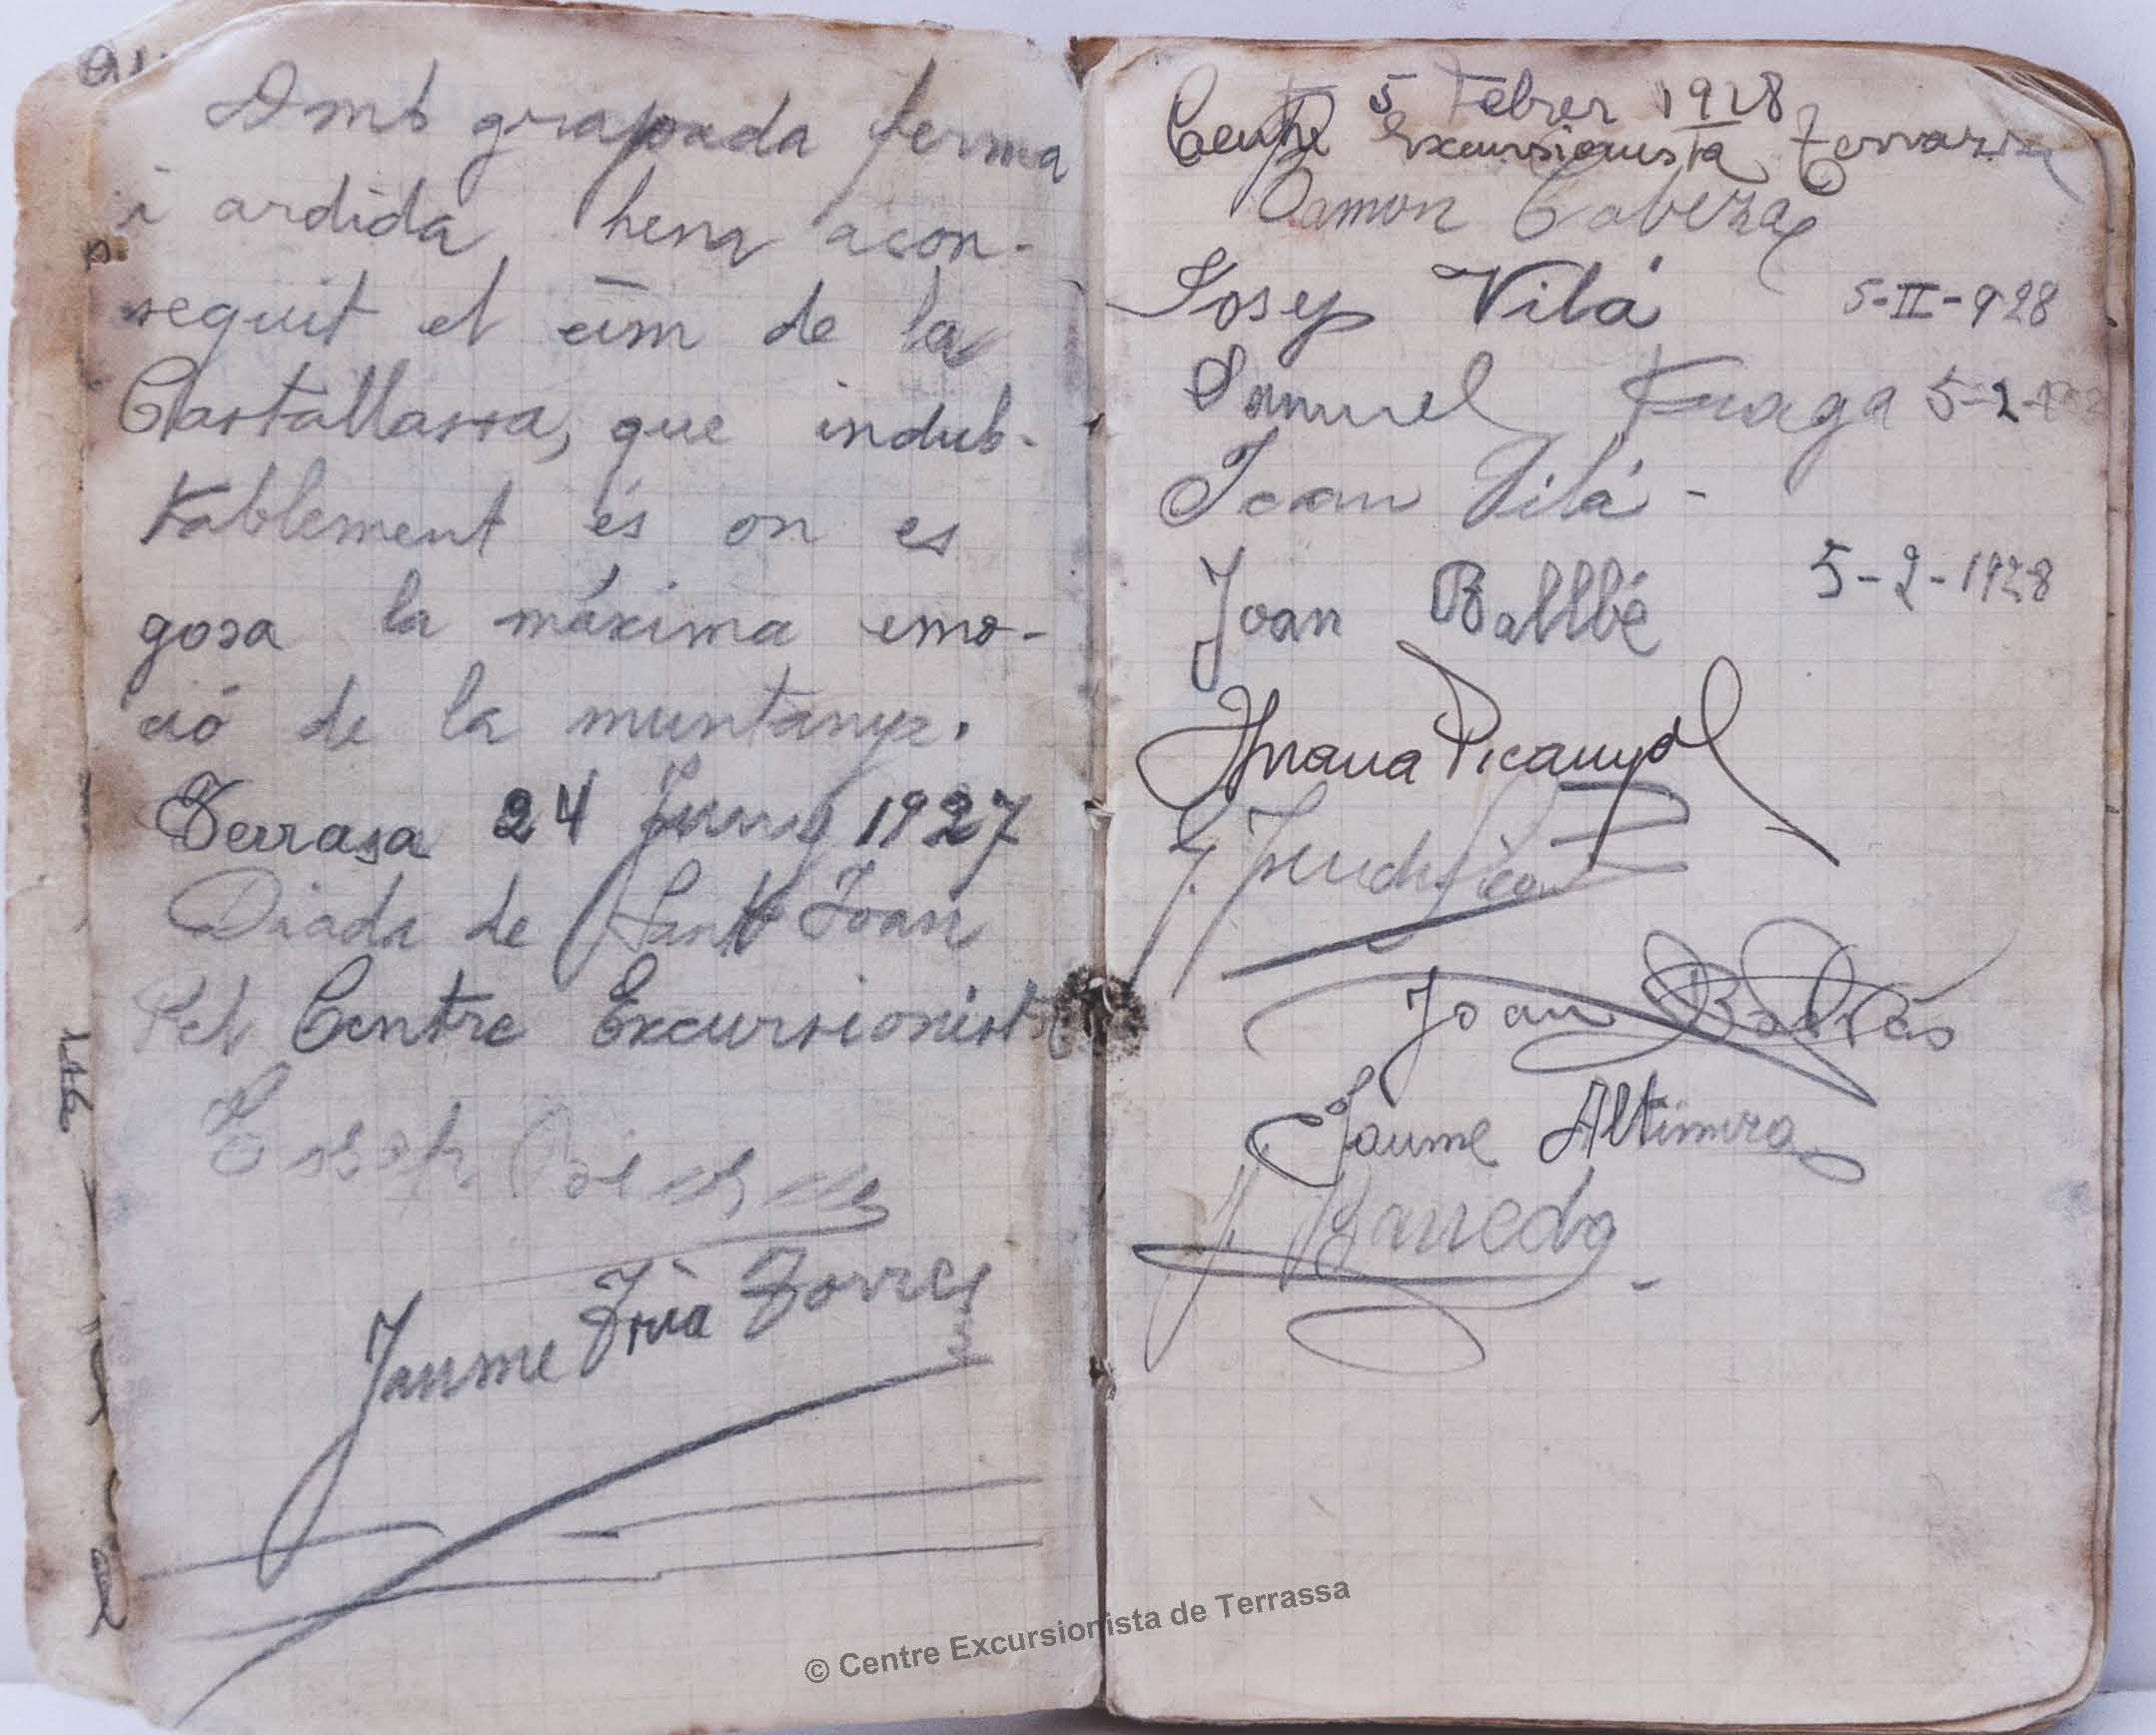 Amb grapada ferma
i ardida hem acon-
seguit el cim de la
Castallassa, que indub-
tablement és on es
gosa la máxima emo-
ció de la muntanya.
Terrasa 24 Juny 1927
Diada de Sant Joan
Pel Centre Excursionista
Josep
Jaume Trià Torres
5 Febrer 1928
Centre Excursionista Terrassa
Ramon Cabeza
Josep Vilá 5-II-928
Samuel Fraga 5-2-
Joan Vilá -
Joan Ballbé 5-2-1928
Picanyol
J.
Joan Baltás
Jaume Altimira
J. Barreda
© Centre Excursionista de Terrassa